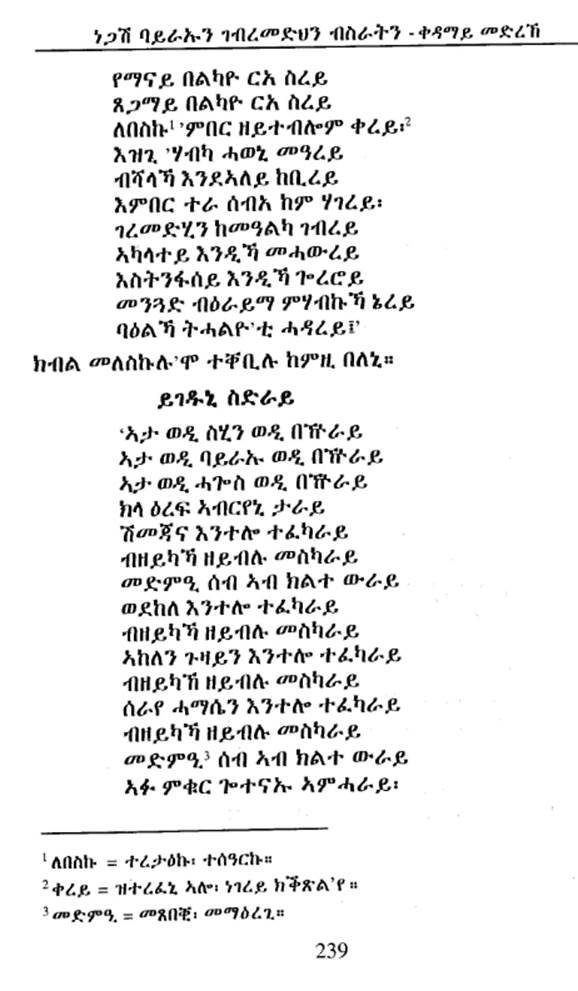 ነጋሽ ባይራኡን ገብረመድህን ብስራትን - ቀዳማይ መድረኽ
የማናይ በልካዮ ርእ ስረይ
ጸጋማይ በልካዮ ርእ ስረይ
ለበስኩ¹ ’ምበር ዘይተብሎም ቀረይ፡²
እዝጊ ’ሃብካ ሓወኒ መዓረይ
ብሻላኻ እንደኣለይ ከቢረይ
እምበር ተራ ሰብአ ከም ሃገረይ፡
ገረመድሂን ከመዓልካ ገብረይ
ኣካላተይ እንዲኻ መሓውረይ
እስትንፋሰይ እንዲኻ ጐረሮይ
መንጓድ ብዕራይማ ምሃብኩኻ ኔረይ
ባዕልኻ ትሓልዮ’ቲ ሓዳረይ፤’
ክብል መለስኩሉ’ሞ ተቐቢሉ ከምዚ በለኒ።
ይገዱኒ ስድራይ
‘ኣታ ወዲ ስሂን ወዲ በዅራይ
ኣታ ወዲ ባይራኡ ወዲ በዅራይ
ኣታ ወዲ ሓጐስ ወዲ በዅራይ
ክላ ዕረፍ ኣብርየኒ ታራይ
ሽመጃና እንተሎ ተፈካራይ
ብዘይካኻ ዘይብሉ መስካራይ
መድምዒ ሰብ ኣብ ክልተ ውራይ
ወደከለ እንተሎ ተፈካራይ
ብዘይካኻ ዘይብሉ መስካራይ
ኣከለን ጉዛይን እንተሎ ተፈካራይ
ብዘይካኸ ዘይብሉ መስካራይ
ሰራየ ሓማሴን እንተሎ ተፈካራይ
ብዘይካኻ ዘይብሉ መስካራይ
መድምዒ³ ሰብ ኣብ ክልተ ውራይ
ኣፉ ምቁር ጐተናኡ ኣምሓራይ፡
¹ ለበስኩ = ተረታዕኩ፡ ተሰዓርኩ።
² ቀረይ = ዝተረፈኒ ኣሎ፡ ነገረይ ክቕጽል’የ ።
³ መድምዒ = መጸበቒ፡ መማዕረጊ።
239